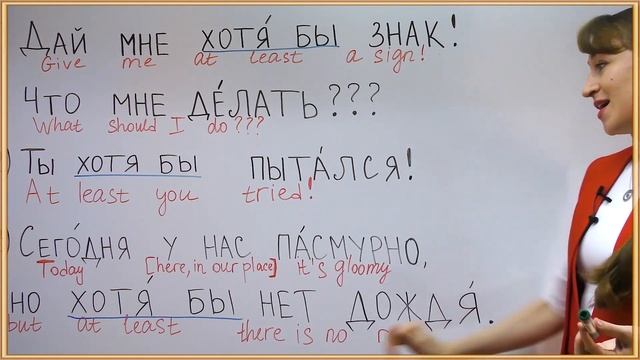 ДАЙ МНЕ ХОТЯ́ БЫ ЗНАК!
Give me at least a sign!
ЧТО МНЕ ДЕ́ЛАТЬ???
What should I do???
) ТЫ ХОТЯ БЫ ПЫТА́ЛСЯ!
At least you tried!
) СЕГО́ДНЯ У НАС ПА́СМУРНО,
Today [here, in our place] it's gloomy
НО ХОТЯ́ БЫ НЕТ ДОЖДЯ́.
but at least there is no